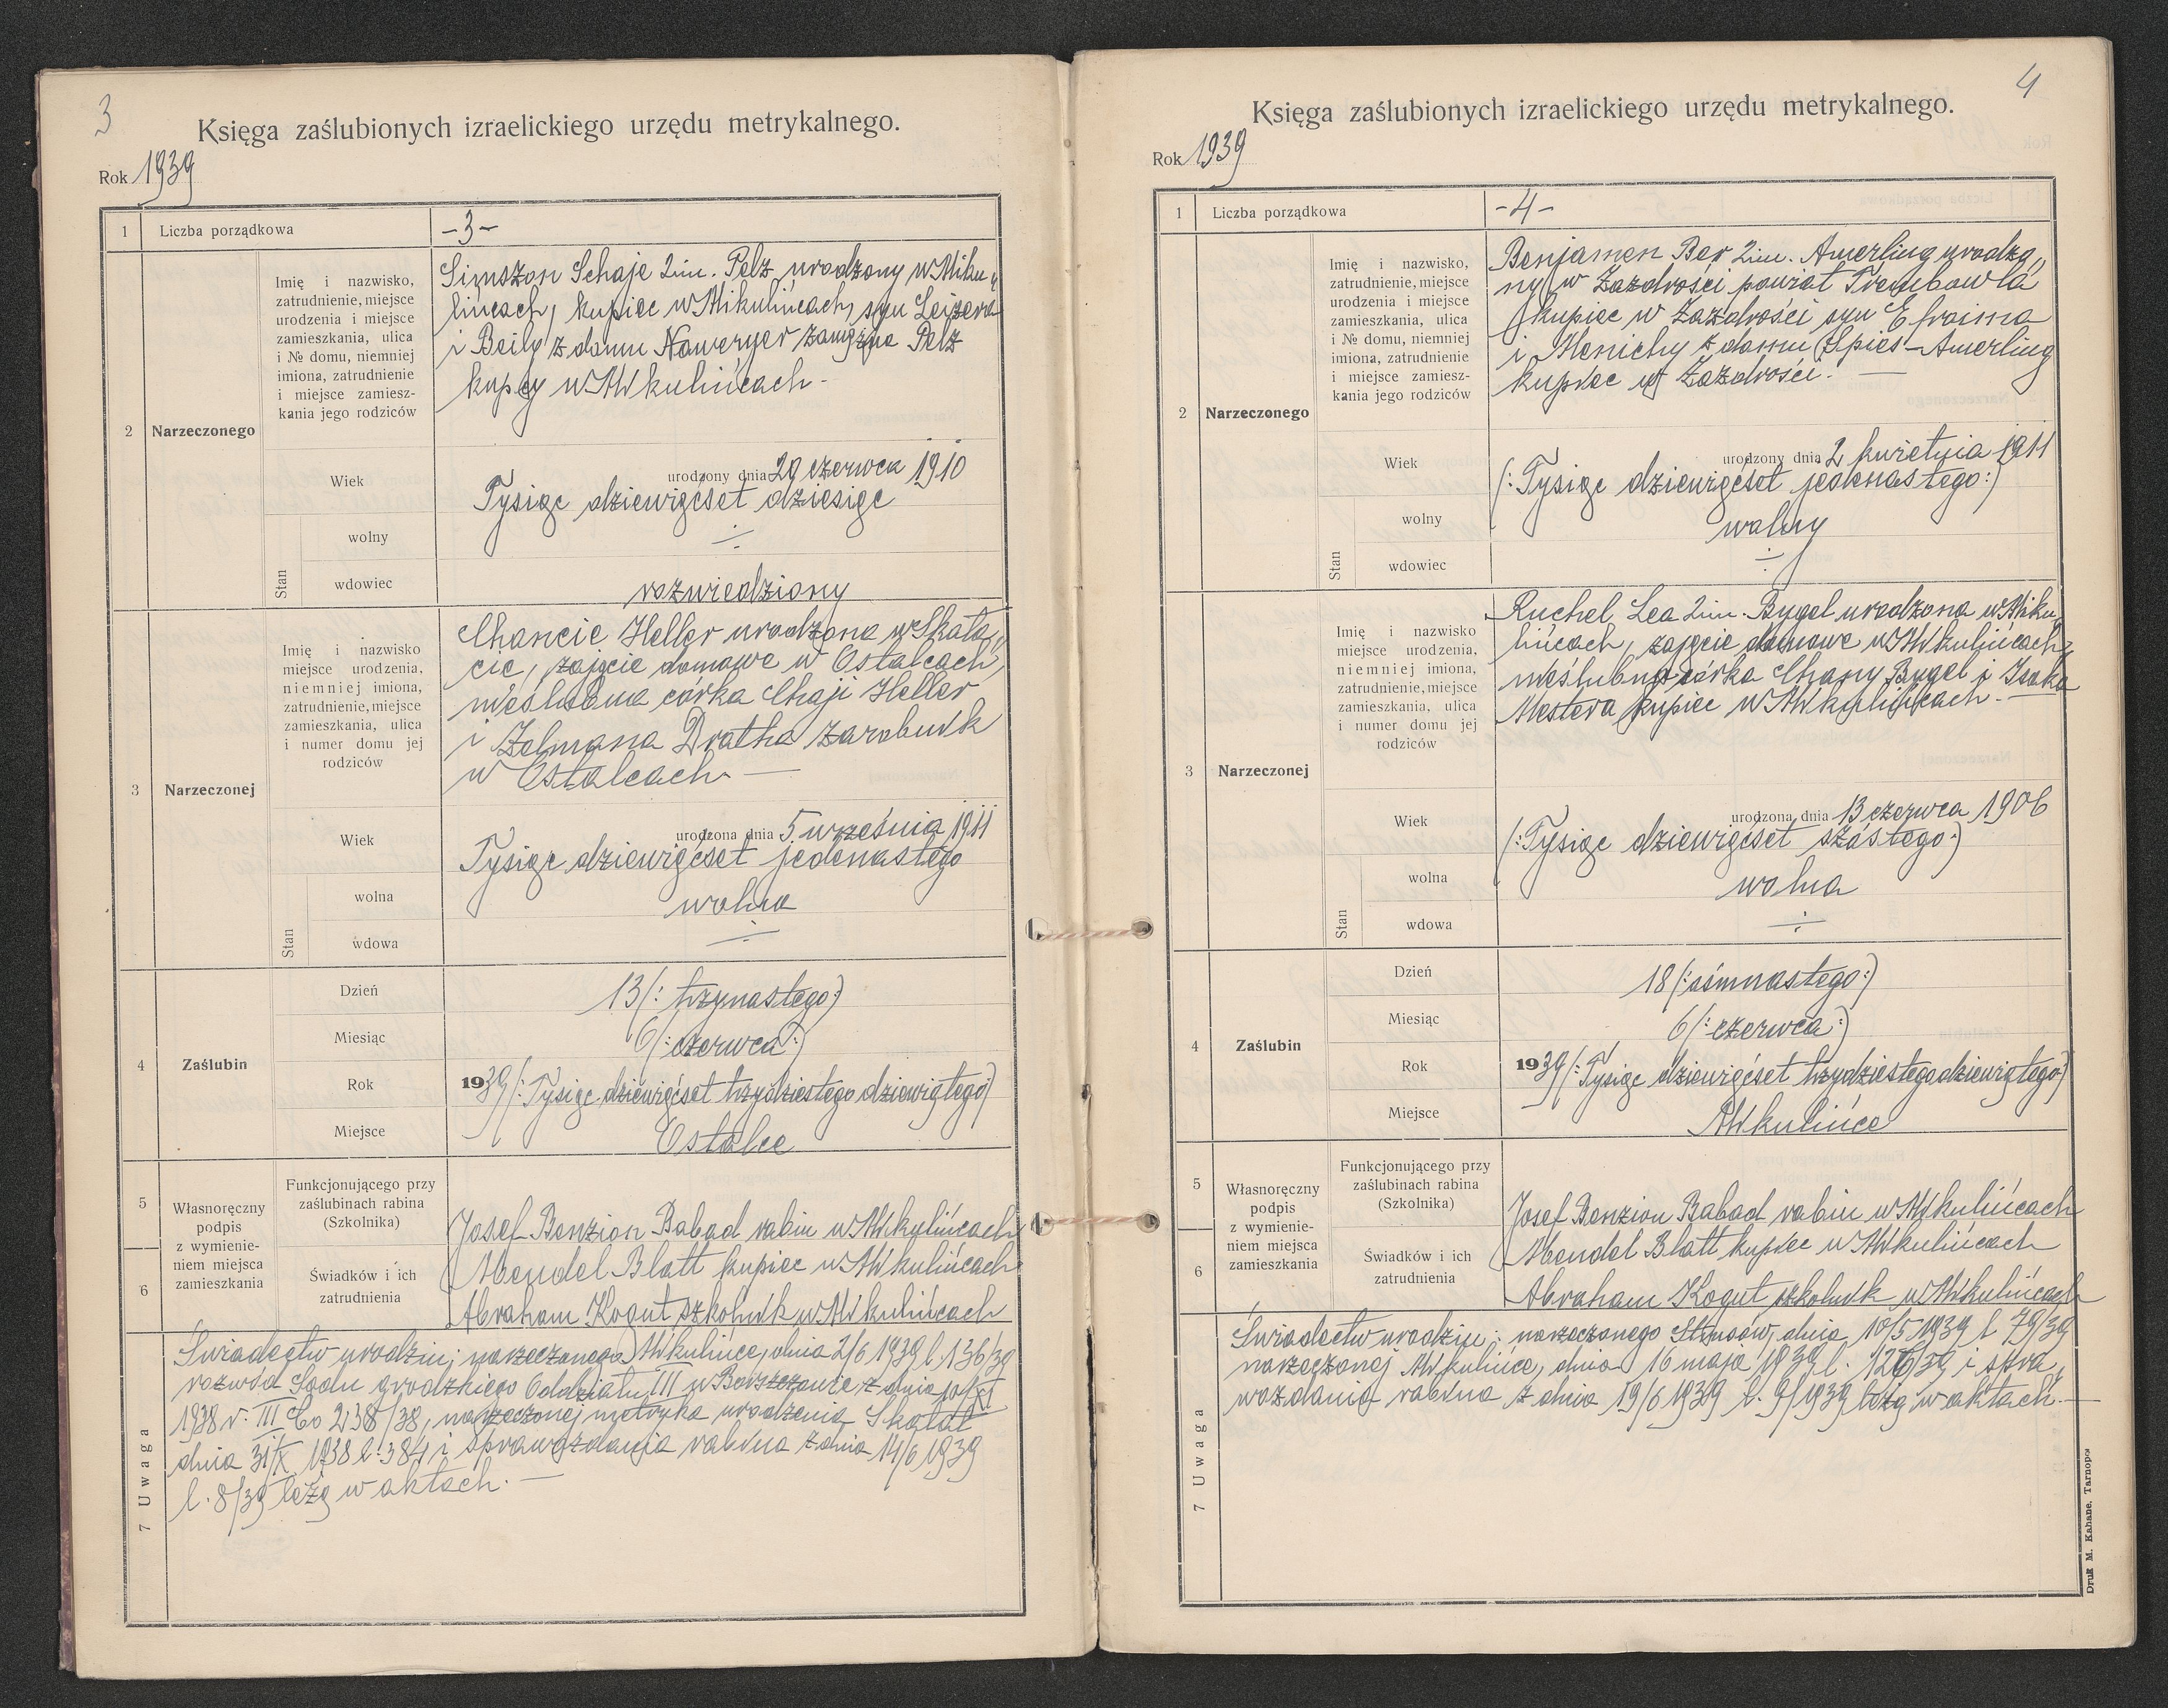 3
Księga zaślubionych izraelickiego urzędu metrykalnego.
Rok 1939
1 Liczba porządkowa -3-
2 Narzeczonego
Imię i nazwisko,
zatrudnienie, miejsce
urodzenia i miejsce
zamieszkania, ulica
i № domu, niemniej
imiona, zatrudnienie
i miejsce zamiesz-
kania jego rodziców
Simszon Schaje 2im. Pelz urodzony w Miku„
lińcach, kupiec w Mikulińcach, syn Leizera
i Beily z domu Naweryer zamężna Pelz
kupcy w Mikulińcach -
Wiek
urodzony dnia 29 czerwca 1910
Tysiąc dziewięćset dziesięć
Stan
wolny ÷
wdowiec rozwiedziony
3 Narzeczonej
Imię i nazwisko
miejsce urodzenia,
niemniej imiona,
zatrudnienie, miejsce
zamieszkania, ulica
i numer domu jej
rodziców
Chancie Heller urodzona w Skała„
cie, zajęcie domowe w Ostalcach,
nieślubna córka Chaji Heller
i Zelmana Dratha zarobnik
w Ostalcach -
Wiek
urodzona dnia 5 września 1911
Tysiąc dziewięćset jedenastego
Stan
wolna wolna
wdowa ÷
4 Zaślubin
Dzień 13 (: trzynastego:)
Miesiąc 6 (: czerwca :)
Rok 1939 (: Tysiąc dziewięćset trzydziestego dziewiątego:)
Miejsce Ostalce
5
6
Własnoręczny
podpis
z wymienie-
niem miejsca
zamieszkania
Funkcjonującego przy
zaślubinach rabina
(Szkolnika)
Josef Benzion Babad rabin w Mikulińcach
Świadków i ich
zatrudnienia
Mendel Blatt kupiec w Mikulińcach
Abraham Kogut szkolnik w Mikulińcach
7 Uwaga
Świadectw urodzin: narzeczonego Mikulińce, dnia 2/6 1939 l. 136/39
rozwód Sądu grodzkiego Oddziału III w Borszczowie, z dnia 10/XI
1938 r. III Co 238/38, narzeczonej metryka urodzenia Skałat
dnia 31/X 1938 l. 384 i sprawozdania rabina z dnia 14/6 1939
l. 8/39 leżą w aktach. -
4
Księga zaślubionych izraelickiego urzędu metrykalnego.
Rok 1939
1 Liczba porządkowa -4-
2 Narzeczonego
Imię i nazwisko,
zatrudnienie, miejsce
urodzenia i miejsce
zamieszkania, ulica
i № domu, niemniej
imiona, zatrudnienie
i miejsce zamiesz-
kania jego rodziców
Benjamen Ber 2im. Amerling urodzo„
ny w Zazdrości powiat Trembowla
kupiec w Zazdrości syn Efroima
i Menichy z domu Spies-Amerling
kupiec w Zazdrości. -
Wiek
urodzony dnia 2 kwietnia 1911
(: Tysiąc dziewięćset jedenastego:)
Stan
wolny wolny
wdowiec ÷
3 Narzeczonej
Imię i nazwisko
miejsce urodzenia,
niemniej imiona,
zatrudnienie, miejsce
zamieszkania, ulica
i numer domu jej
rodziców
Ruchel Lea 2im. Bygel urodzona w Miku„
lińcach, zajęcie domowe w Mikulińcach,
nieślubna córka Chany Bygel i Isaka
Mestera kupiec w Mikulińcach. -
Wiek
urodzona dnia 13 czerwca 1906
(: Tysiąc dziewięćset szóstego:)
Stan
wolna wolna
wdowa ÷
4 Zaślubin
Dzień 18 (: ośmnastego:)
Miesiąc 6 (: czerwca :)
Rok 1939 (: Tysiąc dziewięćset trzydziestego dziewiątego:)
Miejsce Mikulińce
5
6
Własnoręczny
podpis
z wymienie-
niem miejsca
zamieszkania
Funkcjonującego przy
zaślubinach rabina
(Szkolnika)
Josef Benzion Babad rabin w Mikulińcach
Świadków i ich
zatrudnienia
Mendel Blatt kupiec w Mikulińcach
Abraham Kogut szkolnik w Mikulińcach
7 Uwaga
Świadectw urodzin: narzeczonego Strusów, dnia 10/5 1939 l 79/39
narzeczonej Mikulińce, dnia 16 maja 1939 l. 126/39 i spra„
wozdania rabina z dnia 19/6 1939 l. 9/1939 leżą w aktach. -
Druk M. Kahane, Tarnopol